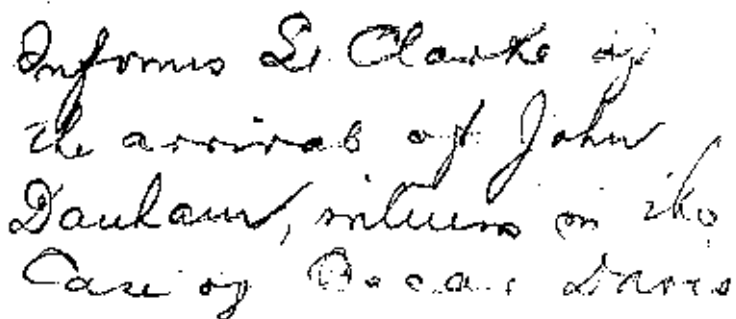 Informs Lt Clarke of
the arrival of John
Danham, witness in the
Case of Oscar Davis